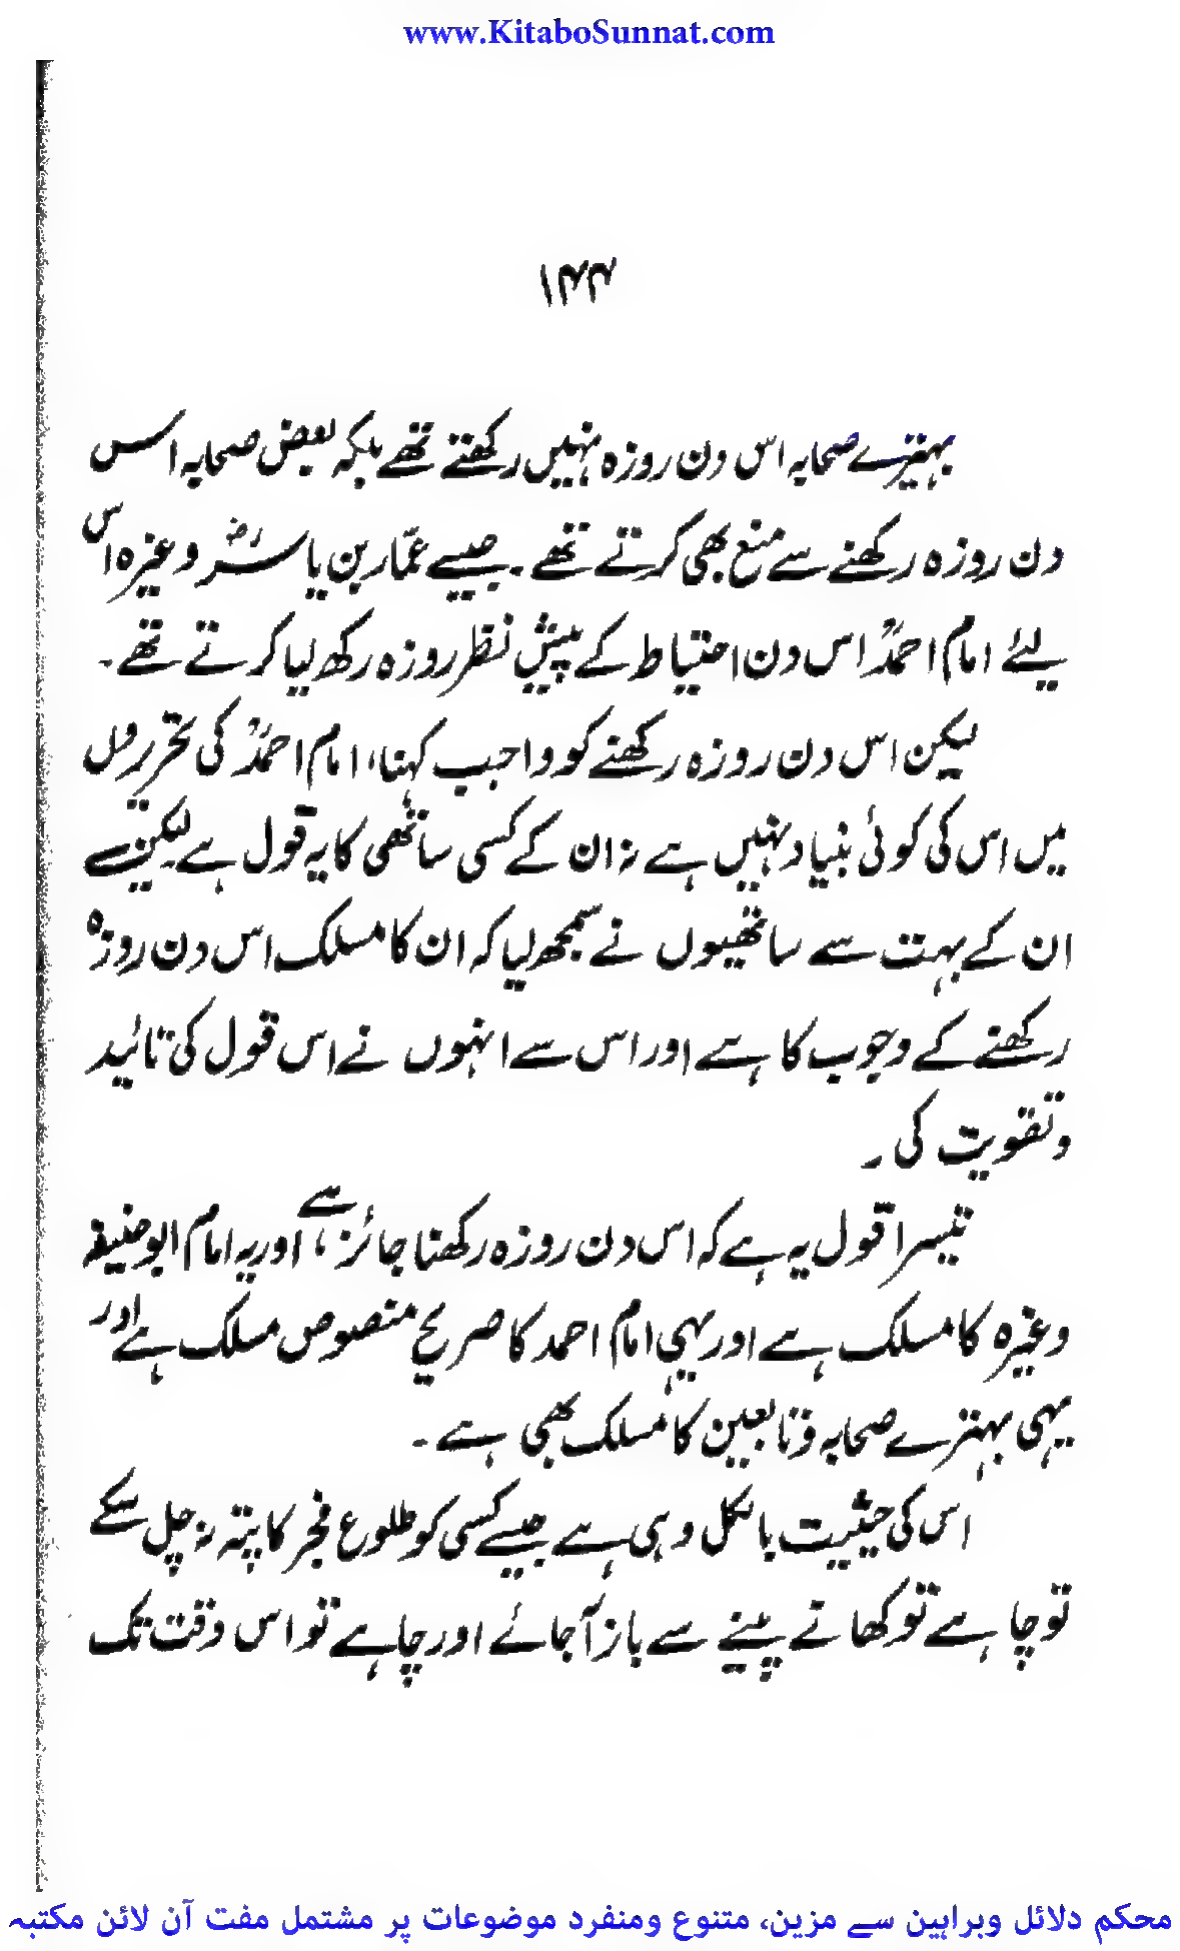 www.KitaboSunnat.com
۱۴۴
بہتیرے صحابہ اس دن روزہ نہیں رکھتے تھے بلکہ بعض صحابہ اس
دن روزہ رکھنے سے منع بھی کرتے تھے۔ جیسے عمّار بن یاسرؓ وغیرہ اس
لیئے امام احمدؒ اس دن احتیاط کے پیش نظر روزہ رکھ لیا کرتے تھے۔
لیکن اس دن روزہ رکھنے کو واجب کہنا، امام احمدؒ کی تحریروں
میں اس کی کوئی بنیاد نہیں ہے نہ ان کے کسی ساتھی کا یہ قول ہے لیکن
ان کے بہت سے ساتھیوں نے سمجھ لیا کہ ان کا مسلک اس دن روزہ
رکھنے کے وجوب کا ہے اور اس سے انہوں نے اس قول کی تائید
و تقویت کی۔
تیسرا قول یہ ہے کہ اس دن روزہ رکھنا جائز ہے، اور یہ امام ابو حنیفہ
وغیرہ کا مسلک ہے اور یہی امام احمد کا صریح منصوص مسلک ہے اور
یہی بہتیرے صحابہ و تابعین کا مسلک بھی ہے۔
اس کی حیثیت بالکل وہی ہے جیسے کسی کو طلوع فجر کا پتہ نہ چل سکے
تو چاہے تو کھانے پینے سے باز آجائے اور چاہے تو اس وقت تک
محکم دلائل وبراہین سے مزین، متنوع ومنفرد موضوعات پر مشتمل مفت آن لائن مکتبہ